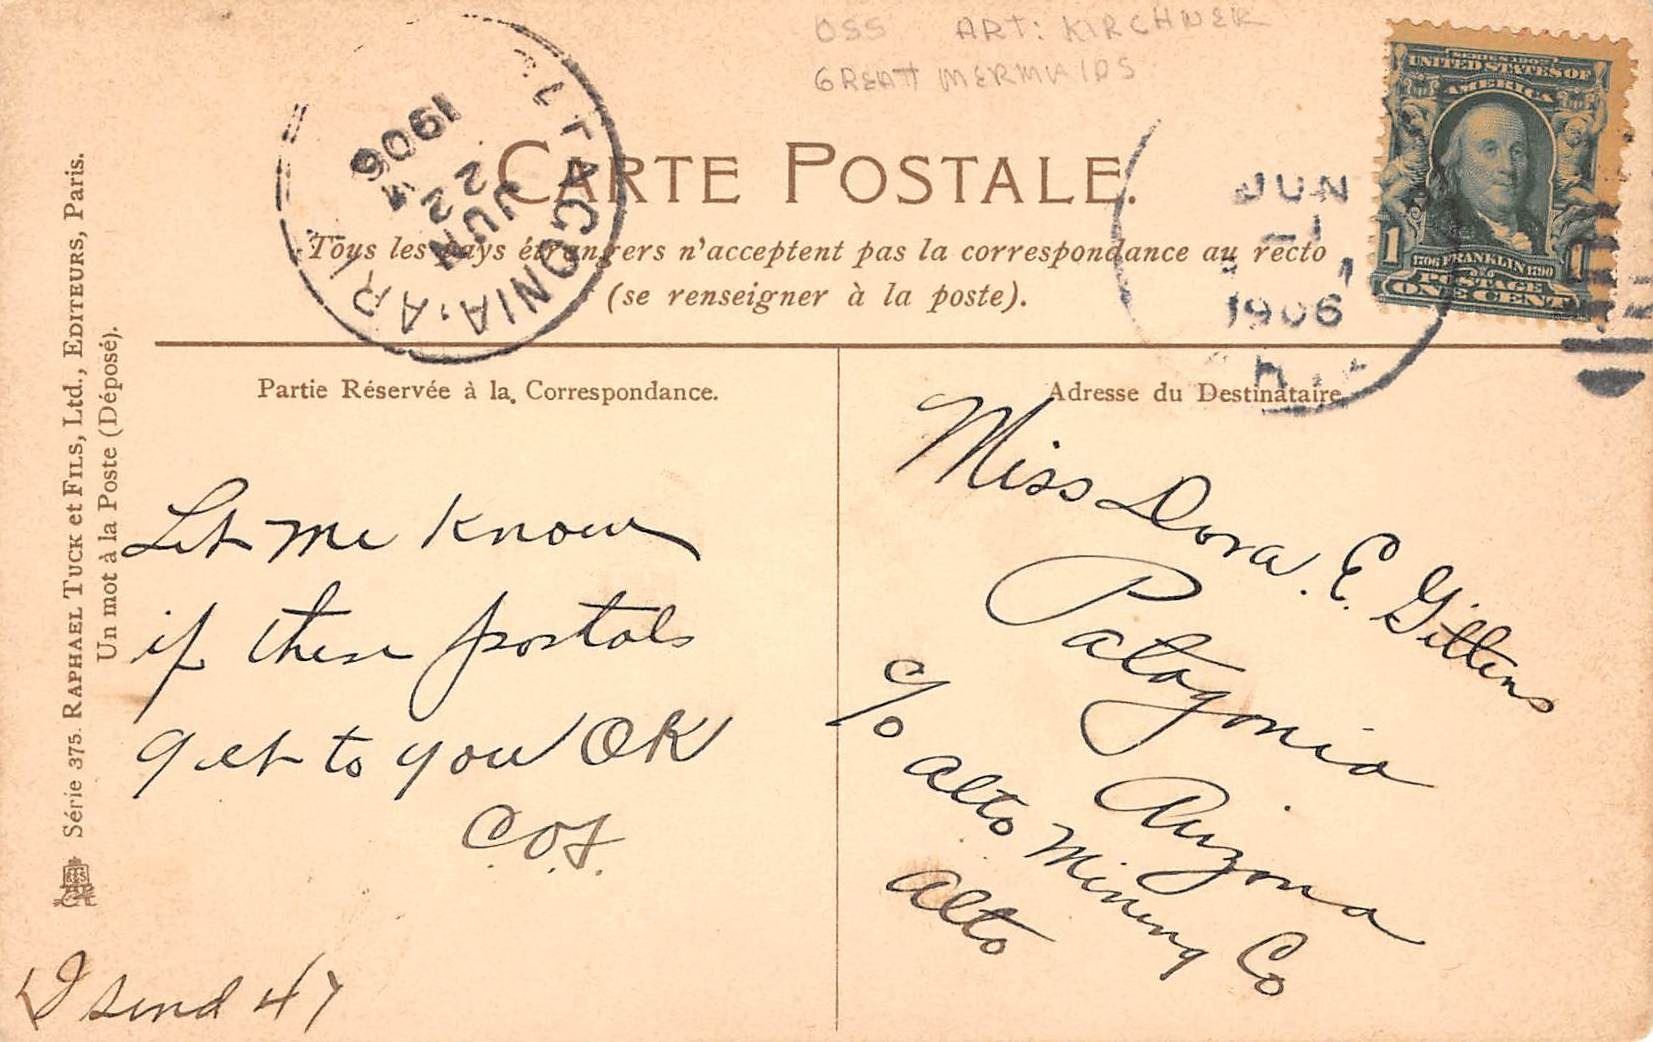 OSS ART: KIRCHNER
GREAT MERMAIDS
SERIES 1902
UNITED STATES OF
AMERICA
1706 FRANKLIN 1790
1 1
POSTAGE
ONE CENT
PATAGONIA, ARI
JUN
22
1906
JUN
1
1906
CARTE POSTALE.
Tous les pays étrangers n'acceptent pas la correspondance au recto
(se renseigner à la poste).
Partie Réservée à la Correspondance.
Adresse du Destinataire
Let me know
if these postals
get to you OK
(I send 4)
Miss Dora. E. Gittens
Patagonia
Arizona
c/o Alto Mining Co
Alto
Série 375. RAPHAEL TUCK et FILS, Ltd., EDITEURS, Paris.
Un mot à la Poste (Déposé).